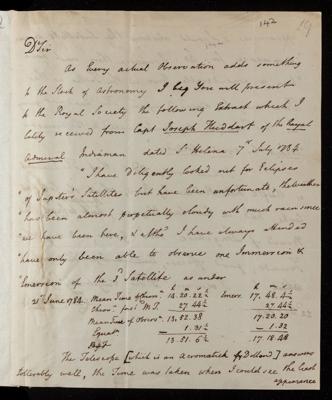 142
19
Dr Sir
As Every actual Observation adds something
to the Stock of Astronomy I beg You will present
to the Royal Society the following Extract which I
lately received from Capt Joseph Huddart of the Royal
Admiral Indiaman dated St Helena 7th July 1784.
"I have Diligently looked out for Eclipses
"of Jupiter's Satellites but have been unfortunate, the weather
"has been almost perpetually cloudy with much rain since
"we have been here, & altho' I have always attended
"have only been able to observe one Immersion &
"Emersion of the 3d Satellite as under
21st June 1784. Mean Time Emers. 17.48.4
27.44½ 27.44½
Mean Time of Observn. 13.52.38 17.20.20
Equatn 1.31½ 1.32
13.51.6½ 17.18.48
The Telescope [which is an Acromatick of Dollond] answers
tolerably well, the Time was taken when I could see the last
appearance